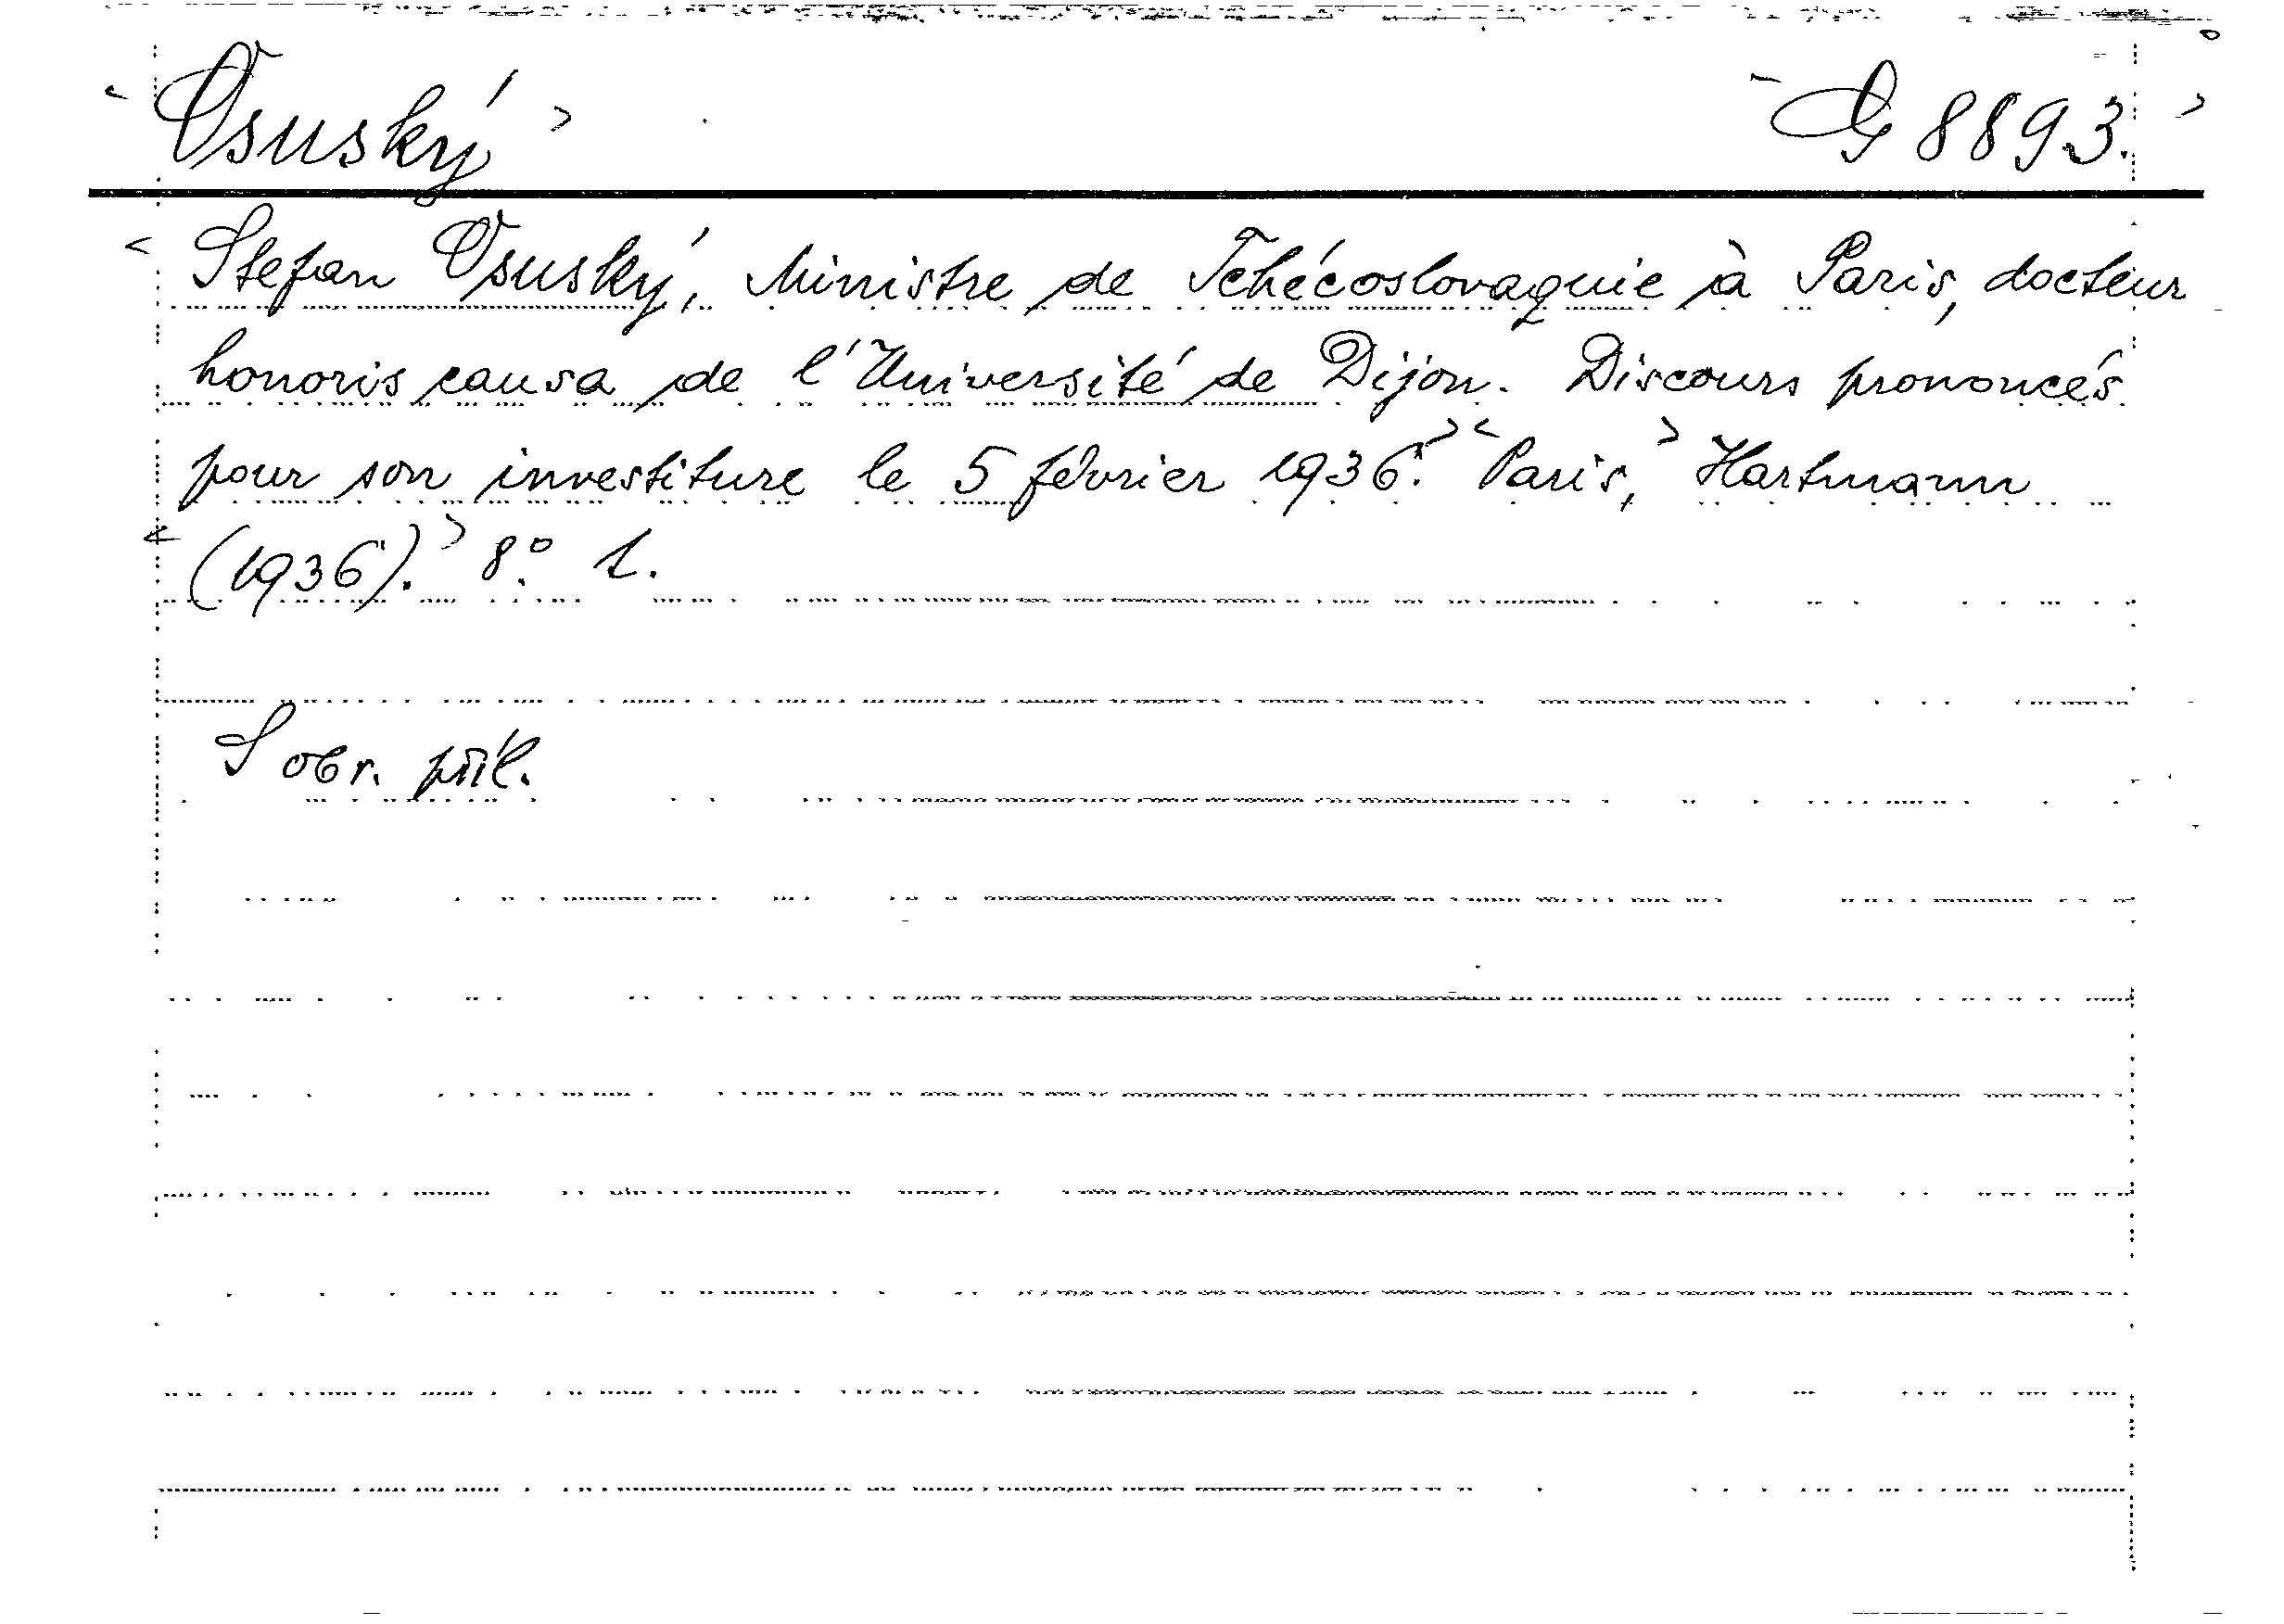 Osuský G 8893.
Stefan Osuský, Ministre de Tchécoslovaquie à Paris, docteur
honoris causa de l'Université de Dijon. Discours prononcés
pour son investiture le 5 février 1936. Paris, Hartmann
(1936). 8° 1.
S obr. příl.